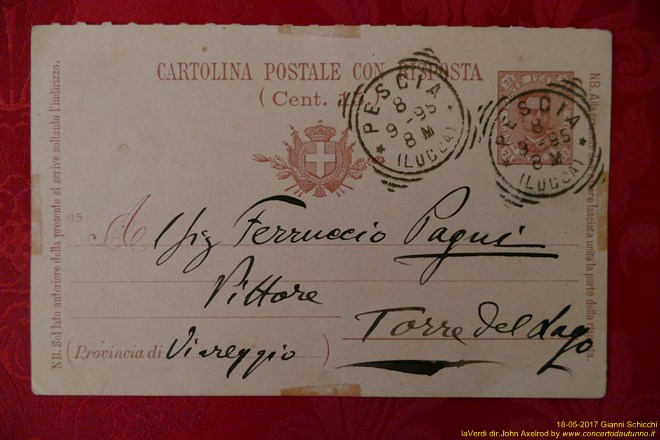 CARTOLINA POSTALE CON RISPOSTA
(Cent. 15)
PESCIA
8
9 -95
8 M
(LUCCA)
PESCIA
8
9 -95
8 M
(LUCCA)
95
A l Sig Ferruccio Pagni
Pittore
Torre del Lago
(Provincia di Viareggio)
NB. Sul lato anteriore della presente si scrive soltanto l'indirizzo.
NB. Alla
essere fasciata unita la parte della
18-05-2017 Gianni Schicchi
laVerdi dir.John Axelrod by www.concertodautunno.it